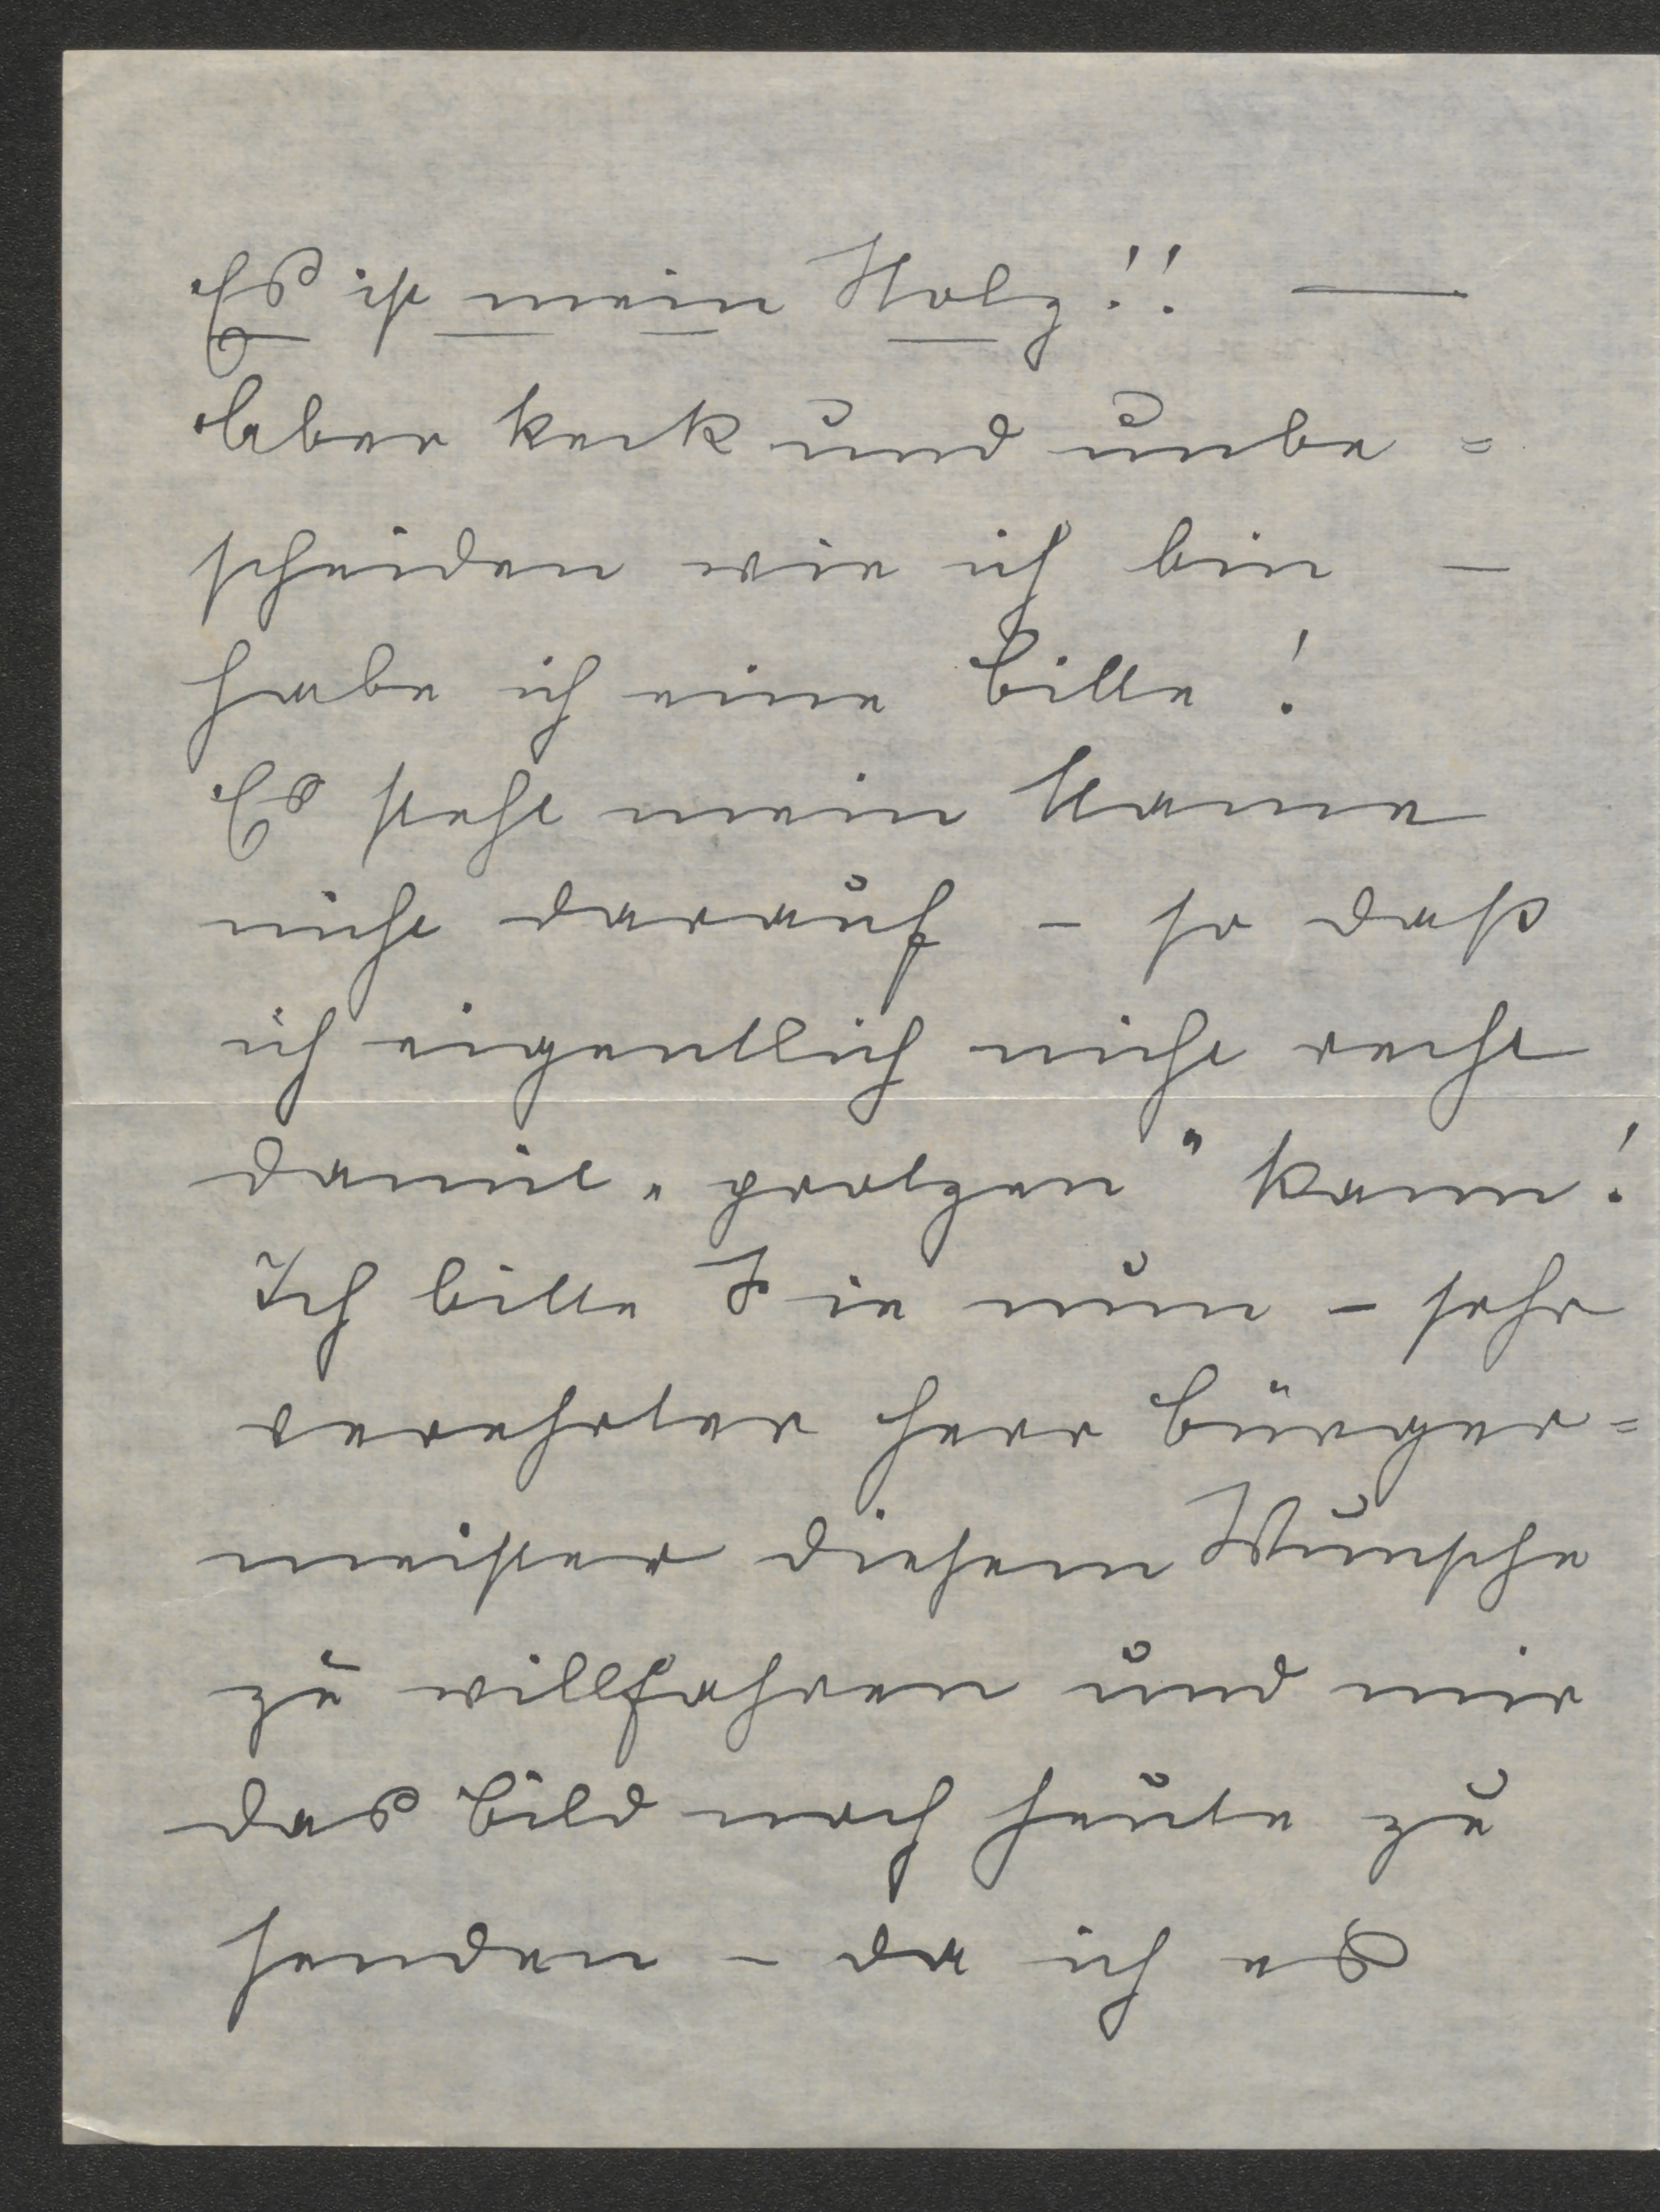 Es ist mein Stolz!! —
Aber keck und unbe=
scheiden wie ich bin –
habe ich eine Bitte!
Es steht mein Name
nicht darauf – so daß
ich eigentlich nicht recht
damit „protzen“ kann!
Ich bitte Sie nun – sehr
verehrter Herr Bürger=
meister diesem Wunsche
zu willfahren und mir
das Bild noch heute zu
senden – da ich es